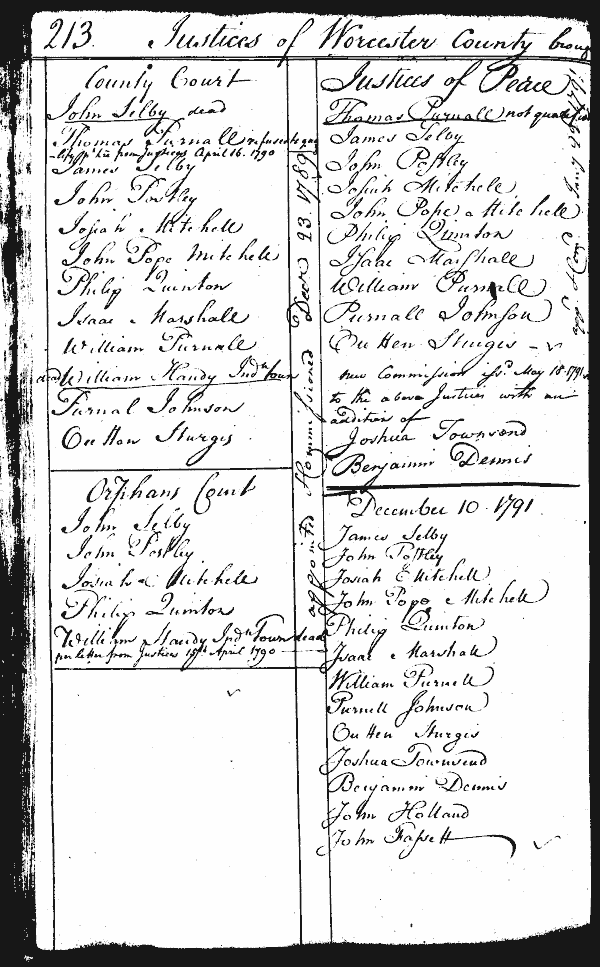 213. Justices of Worcester County broug
County Court
John Selby dead
Thomas Purnall refuses to qua
-lify p. his from Justices April 16. 1790
James Selby
John Postley
Josiah Mitchell
John Pope Mitchell
Philip Quinton
Isaac Marshall
William Purnall
dead William Handy Indn Town
Purnal Johnson
Outten Sturgis
Orphans Court
John Selby
John Postley
Josiah Mitchell
Philip Quinton
William Handy Indn Town dead
per letter from Justices 15th April 1790
appointed & Commissioned Decr 23. 1789
Justices of Peace
Thomas Purnall not qualified
James Selby
John Postley
Josiah Mitchell
John Pope Mitchell
Philip Quinton
Isaac Marshall
William Purnall
Purnall Johnson
Outten Sturgis
new Commission issd May 18. 1791
to the above Justices with an
addition of
Joshua Townsend
Benjamin Dennis
appd & Com. Jany 1791
December 10. 1791
James Selby
John Postley
Josiah Mitchell
John Pope Mitchell
Philip Quinton
Isaac Marshall
William Purnell
Purnell Johnson
Outten Sturgis
Joshua Townsend
Benjamin Dennis
John Holland
John Fassett